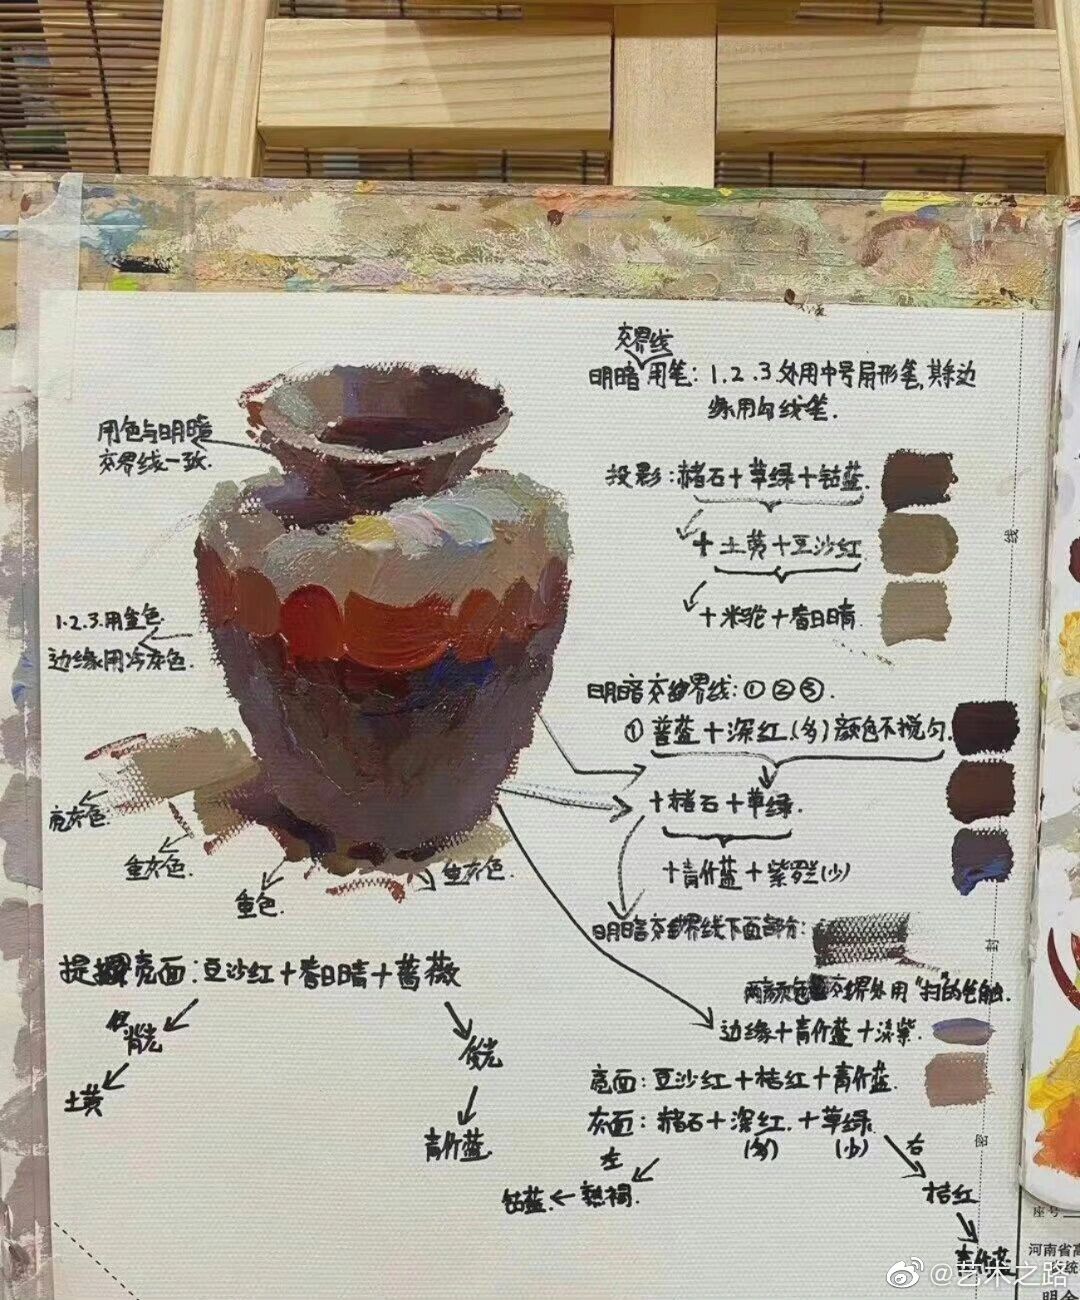 交界线
明暗用笔：1.2.3处用中号扇形笔，其余边
缘用勾线笔.
用色与明暗
交界线一致.
投影：赭石+草绿+钴蓝.
+土黄+豆沙红
+米驼+春日晴.
1.2.3.用重色.
边缘用冷灰色.
明暗交界线：①②③.
①普蓝+深红(多)颜色不搅匀.
+赭石+草绿.
+青竹蓝+紫罗兰(少)
亮灰色.
重灰色.
重色.
重灰色.
明暗交界线下面部分：
两颜色交界处用“扫”的色触.
边缘+青竹蓝+淡紫.
提亮面：豆沙红+春日晴+蔷薇
背光
土黄
侧光
青竹蓝
亮面：豆沙红+桔红+青竹蓝.
灰面：赭石+深红.+草绿.
(多) (少)
左
右
钴蓝.
熟褐.
桔红
青竹蓝
线
封
密
座号
河南省高
统
@艺术之路